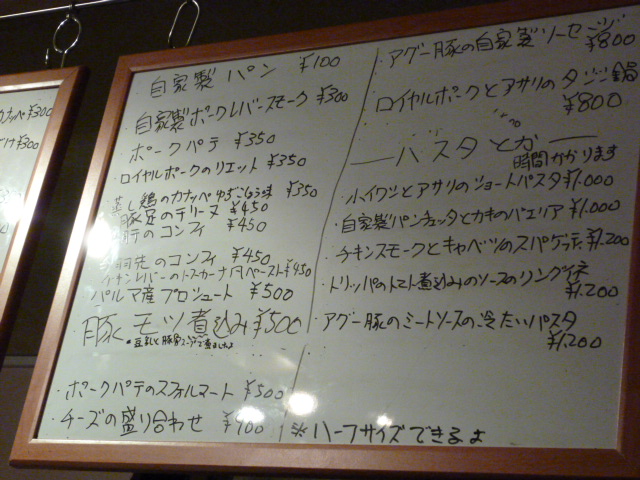 カナッペ¥300
¥300
・自家製 パン ¥100
・自家製ポークレバースモーク ¥300
・ポークパテ ¥350
・ロイヤルポークのリエット ¥350
蒸し鶏のカナッペ ゆずこしょう味 ¥350
豚足のテリーヌ ¥450
のコンフィ ¥450
手羽先のコンフィ ¥450
チキンレバーのトスカーナ風ペースト ¥450
・パルマ産プロシュート ¥500
豚モツ煮込み ¥500
・ポークパテのスフォルマート ¥500
・チーズの盛り合わせ ¥700
・アグー豚の自家製ソーセージ
¥800
・ロイヤルポークとアサリのタジン鍋
¥800
パスタとか
時間かかります
・小イワシとアサリのショートパスタ ¥1.000
・自家製パンチェッタとカキのパエリア ¥1.000
・チキンスモークとキャベツのスパゲッティ ¥1.200
・トリッパのトマト煮込みのソースのリングイネ
¥1.200
・アグー豚のミートソースの冷たいパスタ
¥1.200
※ハーフサイズできるよ